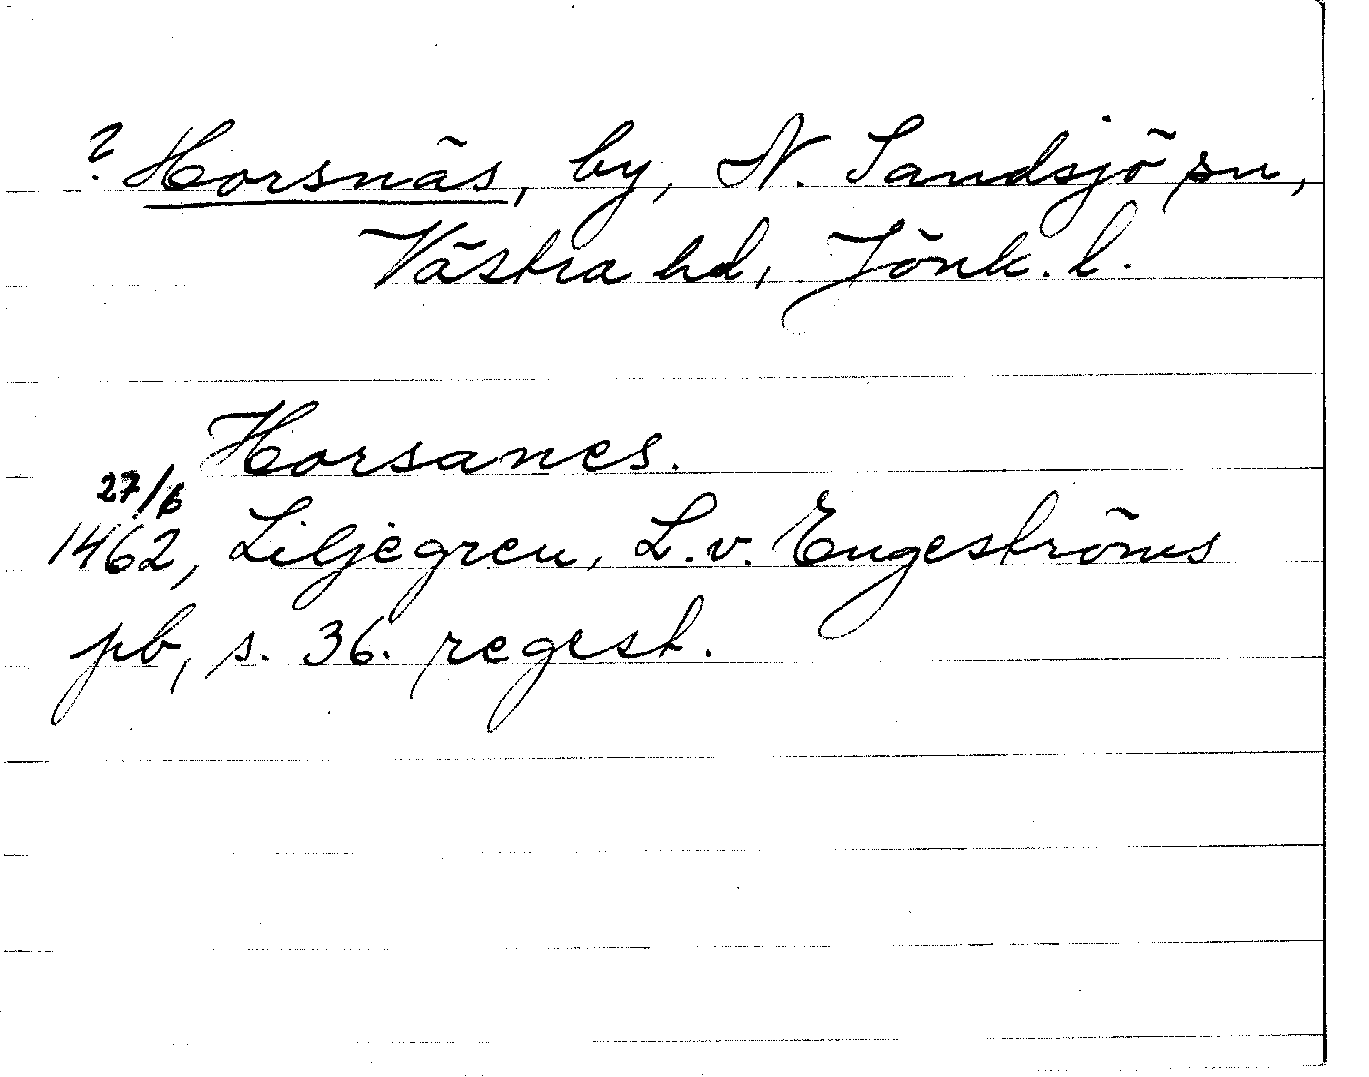 ? Horsnäs, by, N. Sandsjö sn,
Västra hd, Jönk. l.
Horsanes.
27/6
1462, Liljegren, L. v. Engeströms
pb, s. 36. regest.